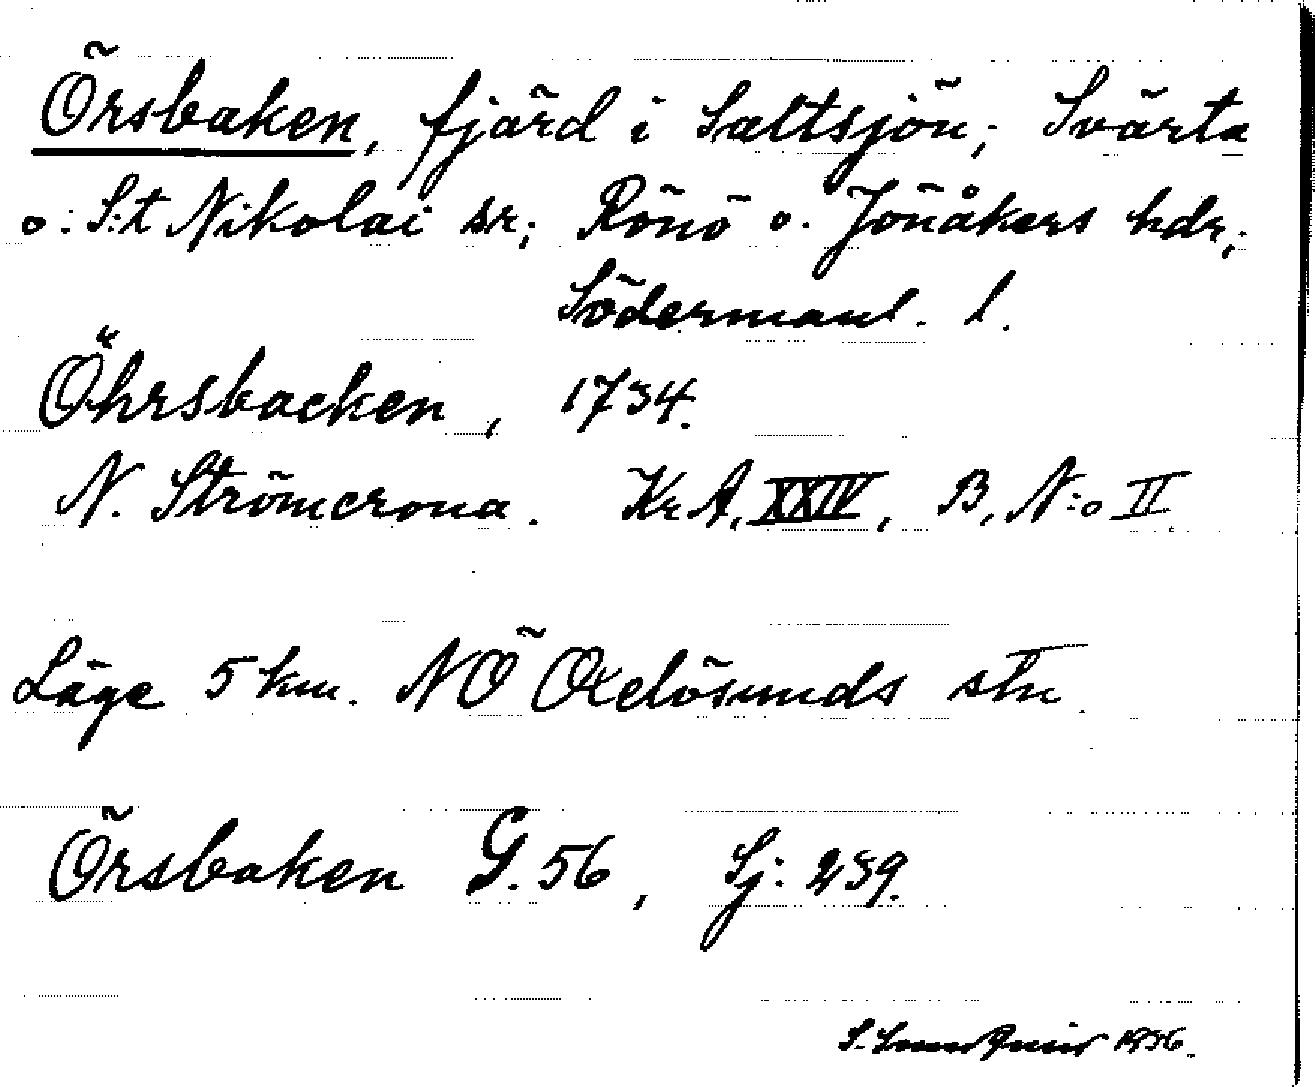 Örsbaken, fjärd i Saltsjön; Svärta
o. S:t Nikolai sr; Rönö o. Jönåkers hdr,
Södermanl. l.
Öhrsbacken, 1734.
N. Strömcrona. Kr A, XXIV, B, N:o II
Läge 5 km. NÖ Oxelösunds stn
Örsbaken G. 56, Sj: 239.
S. 1936.